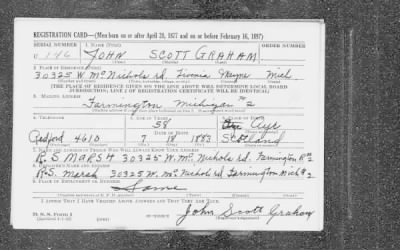 REGISTRATION CARD—(Men born on or after April 28, 1877 and on or before February 16, 1897)
SERIAL NUMBER 1. NAME (Print) ORDER NUMBER
U 146 JOHN SCOTT GRAHAM
2. PLACE OF RESIDENCE (Print)
30325 W McNichols rd. Livonia Wayne Mich
[THE PLACE OF RESIDENCE GIVEN ON THE LINE ABOVE WILL DETERMINE LOCAL BOARD
JURISDICTION; LINE 2 OF REGISTRATION CERTIFICATE WILL BE IDENTICAL]
3. MAILING ADDRESS
Farmington Michigan #2
4. TELEPHONE 5. AGE IN YEARS 6. PLACE OF BIRTH
58 Ayr
DATE OF BIRTH
Redford 4610 7 18 1883 Scotland
7. NAME AND ADDRESS OF PERSON WHO WILL ALWAYS KNOW YOUR ADDRESS
R.S MARSH 30325 W. Mc Nichols Rd. Farmington R#2
8. EMPLOYER'S NAME AND ADDRESS
R.S. Marsh 30325 W. Mc Nichols rd Farmington Mich #2
9. PLACE OF EMPLOYMENT OR BUSINESS
Same
I AFFIRM THAT I HAVE VERIFIED ABOVE ANSWERS AND THAT THEY ARE TRUE.
D. S. S. Form 1
John Scott Graham